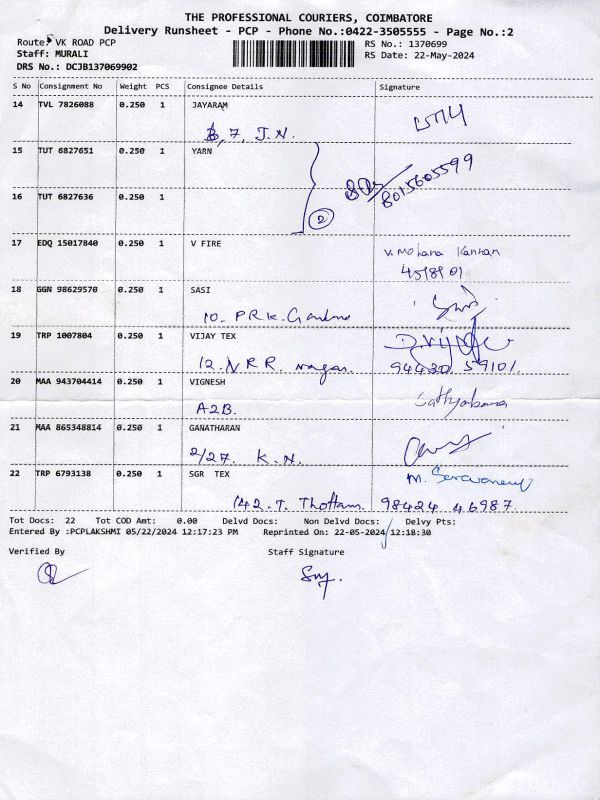 THE PROFESSIONAL COURIERS, COIMBATORE
Delivery Runsheet - PCP - Phone No.:0422-3505555 - Page No.:2
Route: VK ROAD PCP
RS No.: 1370699
Staff: MURALI
RS Date: 22-May-2024
DRS No.: DCJB137069902
S No Consignment No Weight PCS Consignee Details Signature
14 TVL 7826088 0.250 1 JAYARAM
B, 7, J.N.
15 TUT 6827651 0.250 1 YARN
8015605599
16 TUT 6827636 0.250 1
2
17 EDQ 15017840 0.250 1 V FIRE
V. Mohana Kannan
18 GGN 98629570 0.250 1 SASI
10. P R K.
19 TRP 1007804 0.250 1 VIJAY TEX
12. N R R. nagar. 94430 59101
20 MAA 943704414 0.250 1 VIGNESH
A2B.
21 MAA 865348814 0.250 1 GANATHARAN
2/27. K.N.
22 TRP 6793138 0.250 1 SGR TEX
142. T. Thottam. 98424 46987
Tot Docs: 22 Tot COD Amt: 0.00 Delvd Docs: Non Delvd Docs: Delvy Pts:
Entered By :PCPLAKSHMI 05/22/2024 12:17:23 PM Reprinted On: 22-05-2024 12:18:30
Verified By Staff Signature